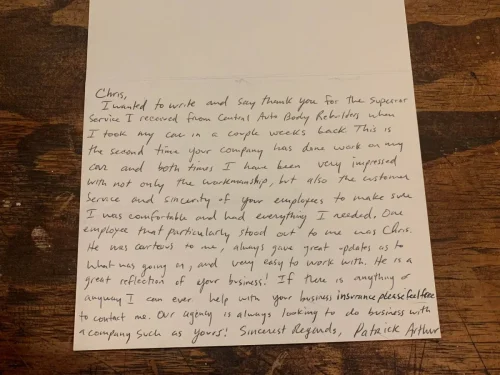 Chris,
I wanted to write and say thank you for the superior
Service I received from Central Auto Body Rebuilders when
I took my car in a couple weeks back This is
the second time your company has done work on my
car and both times I have been very impressed
with not only the workmanship, but also the customer
Service and sincerity of your employees to make sure
I was comfortable and had everything I needed. One
employee that particularly stood out to me was Chris.
He was corteous to me, always gave great updates as to
what was going on, and very easy to work with. He is a
great reflection of your business! If there is anything or
anyway I can ever help with your business insurance please feel free
to contact me. Our agency is always looking to do business with
a company such as yours! Sincerest Regards, Patrick Arthur